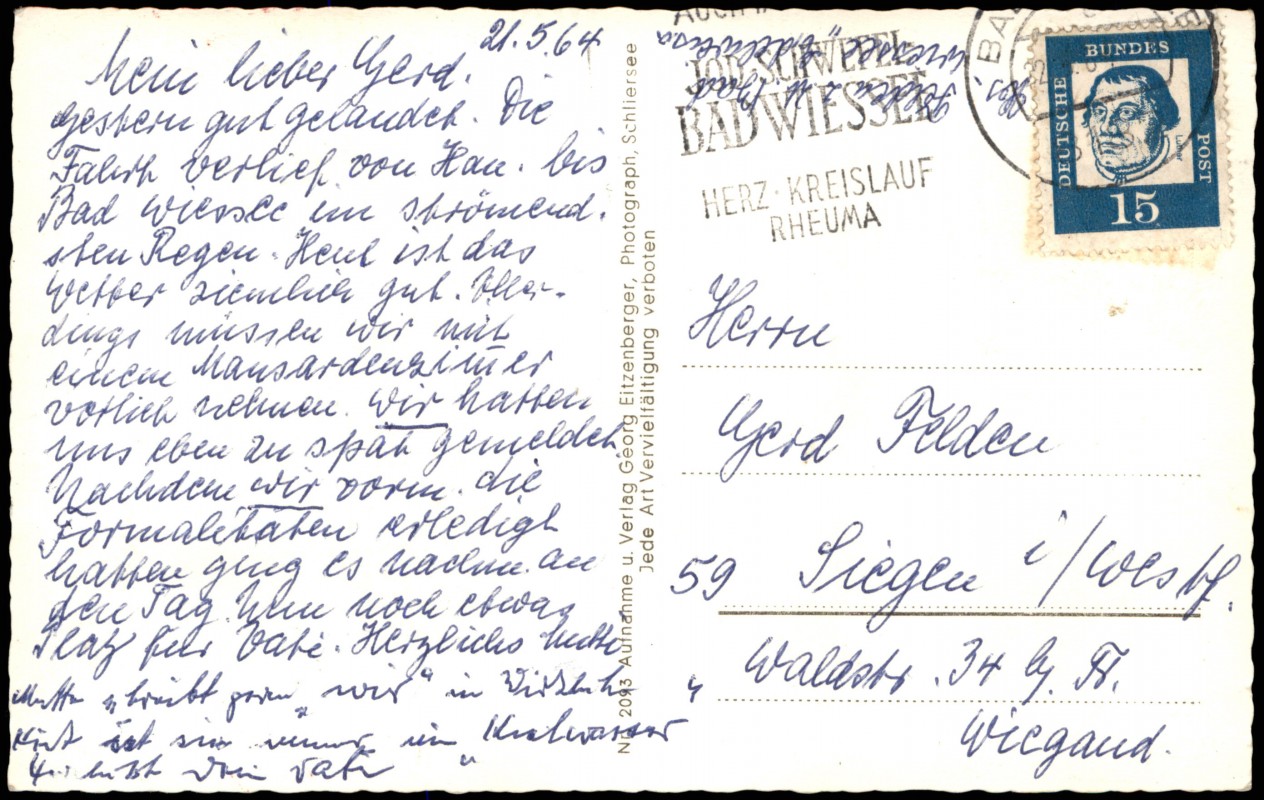 21.5.64
Mein lieber Gerd.
gestern gut gelandet. Die
Fahrt verlief von Han. bis
Bad Wiessee im strömend.
sten Regen. Heut ist das
Wetter ziemlich gut. Aller-
dings müssen wir mit
einem Mansardenzimmer
vorlieb nehmen. Wir hatten
uns eben zu spät gemeldet.
Nachdem wir vorm. die
Formalitäten erledigt
hatten ging es nachm. an
den Tag. Nun noch etwas
Platz für Vati. Herzlichst Mutti
Mutti schreibt gern "wir" in Wirklich-
keit ist sie immer im "Kielwasser"
Herzlichst Dein Vati
Nr. 2093 Aufnahme u. Verlag Georg Eitzenberger, Photograph, Schliersee
Jede Art Vervielfältigung verboten
Abs. Felden z. Zt. Bad
Wiessee "Edelweiss"
AUCH
JOD-SCHWEFEL
BAD WIESSEE
HERZ · KREISLAUF
RHEUMA
DEUTSCHE
BUNDES
POST
Luther
15
Herrn
Gerd Felden
59 Siegen i/Westf.
Waldstr. 34 b/ Fr.
Wiegand.